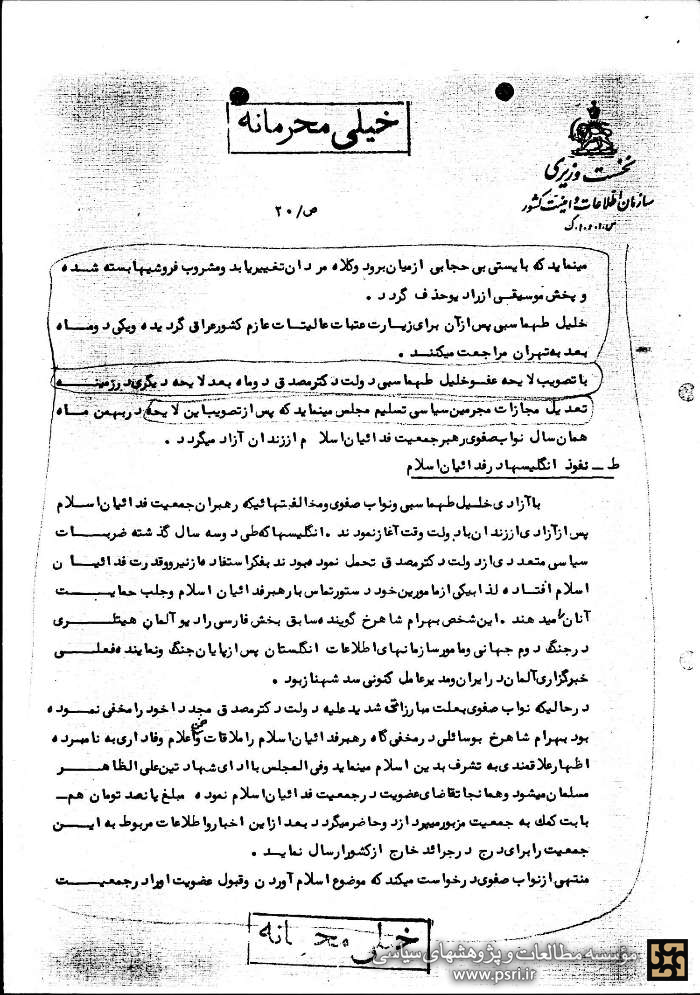 خیلی محرمانه
نخست وزیری
سازمان اطلاعات و امنیت کشور
ص/۲۰
مینماید که بایستی بی حجابی ازمیان برود وکلاه مردان تغییریابد ومشروب فروشیهابسته شده
و پخش موسیقی از رادیوحذف گردد .
خلیل طهماسبی پس ازآن برای زیارت عتبات عالیات عازم کشورعراق گردیده ویکی دوماه
بعد به تهران مراجعت میکنند .
با تصویب لایحه عفو خلیل طهماسبی دولت دکترمصدق دوماه بعد لایحه دیگری درزمینه
تعدیل مجازات مجرمین سیاسی تسلیم مجلس مینماید که پس ازتصویب این لایحه دربهمن ماه
همان سال نواب صفوی رهبرجمعیت فدائیان اسلام اززندان آزاد میگردد .
ط ـ نفوذ انگلیسهادرفدائیان اسلام
باآزادی خلیل طهماسبی ونواب صفوی ومخالفتهائیکه رهبران جمعیت فدائیان اسلام
پس ازآزادی اززندان بادولت وقت آغازنمودند . انگلیسهاکه طی دوسه سال گذشته ضربات
سیاسی متعددی ازدولت دکترمصدق تحمل نموده بودند بفکراستفاده ازنیرووقدرت فدائیان
اسلام افتاده لذابیکی ازمامورین خود دستورتماس بارهبرفدائیان اسلام وجلب حمایت
آنان را میدهند . این شخص بهرام شاهرخ گوینده سابق بخش فارسی رادیوآلمان هیتلری
درجنگ دوم جهانی ومامورسازمانهای اطلاعات انگلستان پس ازپایان جنگ ونماینده فعلی
خبرگزاری آلمان درایران ومدیرعامل کنونی سد شهنازبود .
درحالیکه نواب صفوی بعلت مبارزات شدید علیه دولت دکترمصدق مجددا خودرامخفی نموده
بود بهرام شاهرخ بوسائلی درمخفی گاه رهبرفدائیان اسلام راملاقات و ضمن اعلام وفاداری به نامبرده
اظهارعلاقمندی به تشرف بدین اسلام مینماید وفی المجلس باادای شهادتین علی الظاهر
مسلمان میشود وهمانجا تقاضای عضویت درجمعیت فدائیان اسلام نموده مبلغ پانصد تومان هم
بابت کمك به جمعیت مزبورمیپردازد وحاضرمیگردد بعدازاین اخبارواطلاعات مربوط به این
جمعیت رابرای درج درجرائد خارج ازکشورارسال نماید .
منتهی ازنواب صفوی درخواست میکند که موضوع اسلام آوردن وقبول عضویت اورادرجمعیت
خیلی محرمانه
مؤسسه مطالعات و پژوهشهای سیاسی
www.psri.ir